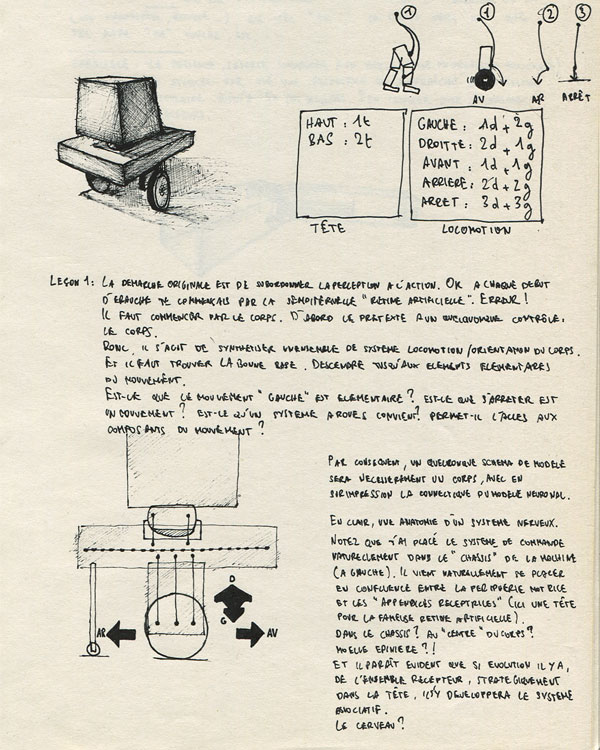 1 1 2 3
AV AR ARRÊT
HAUT : 1t
BAS : 2t
TÊTE
GAUCHE : 1d + 2g
DROITTE : 2d + 1g
AVANT : 1d + 1g
ARRIERE : 2d + 2g
ARRET : 3d + 3g
LOCOMOTION
LEÇON 1 : LA DEMARCHE ORIGINALE EST DE SUBORDONNER LA PERCEPTION A L'ACTION. OR A CHAQUE DEBUT
D'EBAUCHE JE COMMENÇAIS PAR LA SEMPITERNELLE "RETINE ARTIFICIELLE". ERREUR !
IL FAUT COMMENCER PAR LE CORPS. D'ABORD LE PRETEXTE A UN QUELCONQUE CONTRÔLE :
LE CORPS.
DONC, IL S'AGIT DE SYNTHETISER UN ENSEMBLE DE SYSTEME LOCOMOTION/ORIENTATION DU CORPS.
ET IL FAUT TROUVER LA BONNE BASE. DESCENDRE JUSQU'AUX ELEMENTS ELEMENTAIRES
DU MOUVEMENT.
EST-CE QUE LE MOUVEMENT "GAUCHE" EST ELEMENTAIRE ? EST-CE QUE S'ARRETER EST
UN MOUVEMENT ? EST-CE QU'UN SYSTEME A ROUES CONVIENT ? PERMET-IL L'ACCES AUX
COMPOSANTS DU MOUVEMENT ?
PAR CONSEQUENT, UN QUELCONQUE SCHEMA DE MODELE
SERA UN CORPS, AVEC EN
SURIMPRESSION LA CONNECTIQUE DU MODELE NEURONAL.
EN CLAIR, UNE ANATOMIE D'UN SYSTEME NERVEUX.
NOTEZ QUE J'AI PLACÉ LE SYSTEME DE COMMANDE
NATURELLEMENT DANS LE "CHASSIS" DE LA MACHINE
(A GAUCHE). IL VIENT NATURELLEMENT SE PLACER
EN CONFLUENCE ENTRE LA PERIPHERIE MOTRICE
ET LES "APPENDICES RECEPTRICES" (ICI UNE TÊTE
POUR LA FAMEUSE RETINE ARTIFICIELLE).
DANS LE CHASSIS ? AU "CENTRE" DU CORPS ?
MOELLE EPINIERE ? !
ET IL PARAÎT EVIDENT QUE SI EVOLUTION IL Y A,
DE L'ENSEMBLE RECEPTEUR, STRATEGIQUEMENT
DANS LA TÊTE, IL S'Y DEVELOPPERA LE SYSTEME
ASSOCIATIF.
LE CERVEAU ?
D
G
AR AV